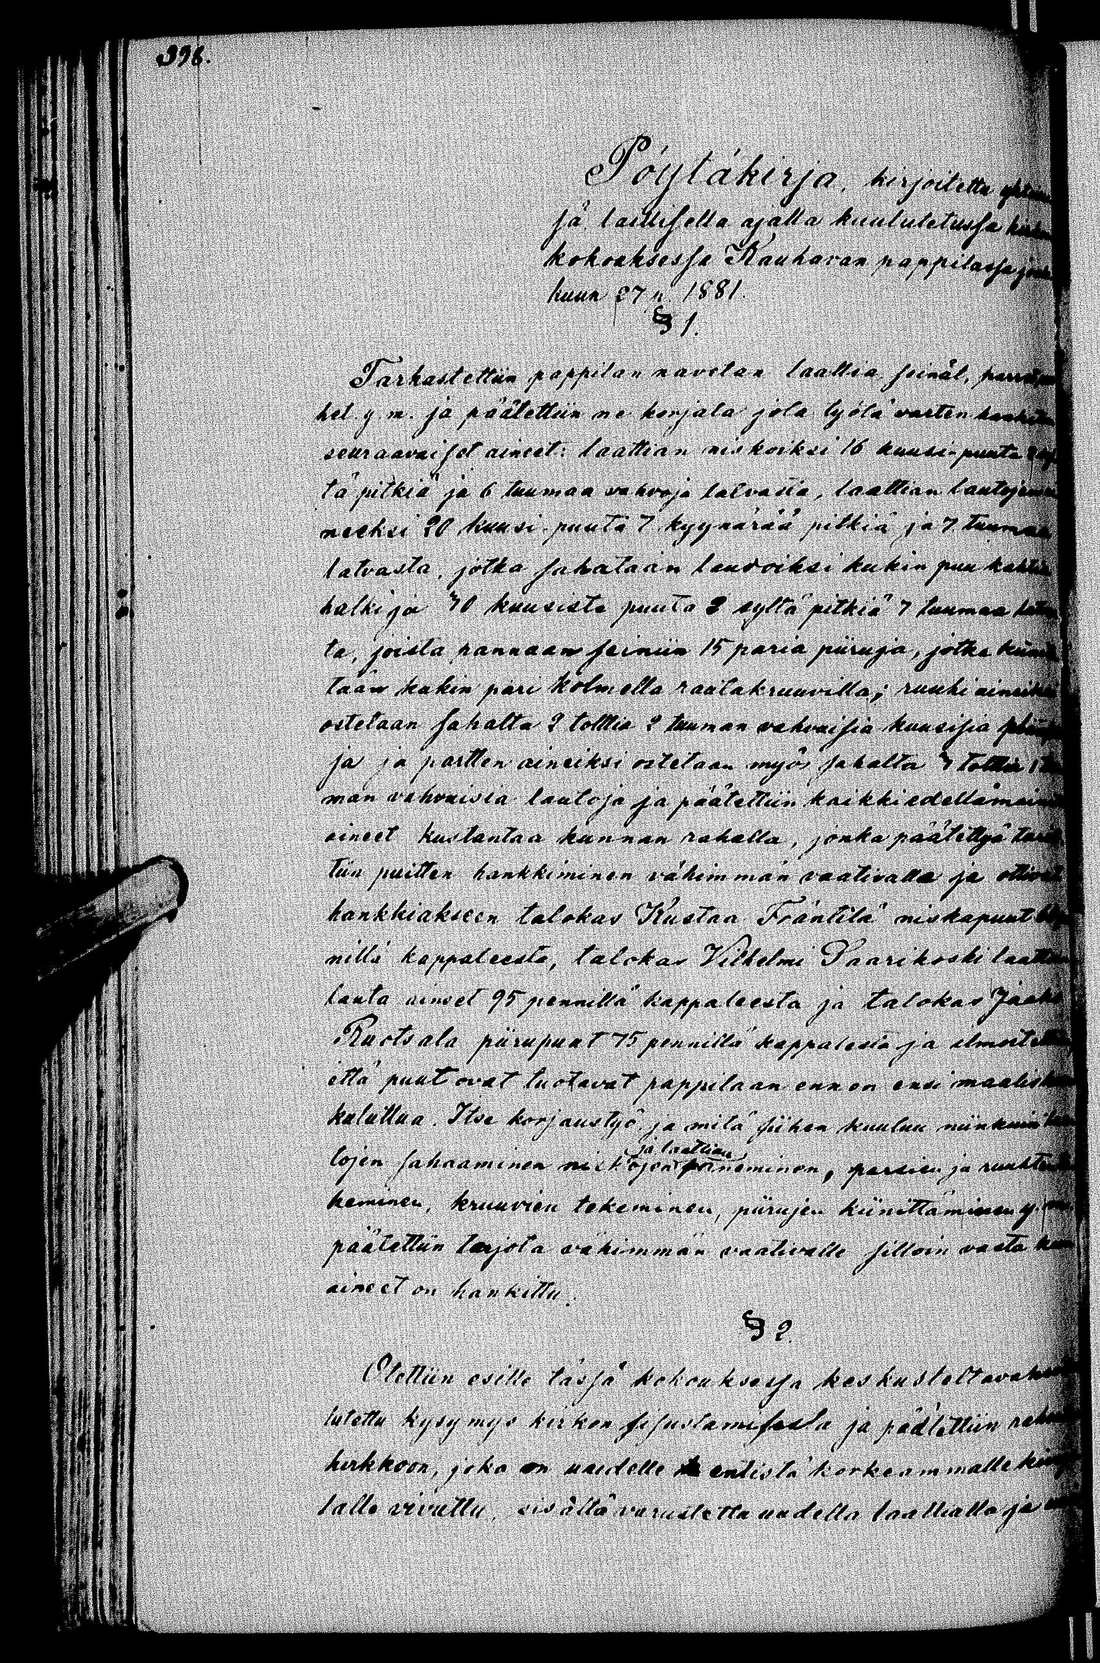 396.
Pöytäkirja, kirjoitettu
sä laillisella ajalla kuulutetussa
kokouksessa Kauhavan pappilassa
kuun 27 p. 1881.
§ 1.
Tarkastettiin pappilan navetan laattia, seinät,
het y.m. ja päätettiin ne korjata jota työtä varten
seuraavaiset aineet: laattian niskoiksi 16 kuusi-puuta
tä pitkiä ja 6 tuumaa vahvoja latvasta, laattian
neeksi 20 kuusi-puuta 7 kyynärää pitkiä ja 7 tuumaa
latvasta, jotka sahataan laudoiksi kukin puu
halki ja 30 kuusista puuta 3 syltä pitkiä 7 tuumaa
ta, joista pannaan seiniin 15 paria piiruja, jotka
tään kukin pari kolmella rautakruuvilla; ruuhi
ostetaan sahalta 2 tolttia 2 tuuman vahvuisia kuusisia
ja ja partten aineiksi ostetaan myös sahalta tolttia 1
man vahvuisia lautoja ja päätettiin kaikki edellämainitut
aineet kustantaa kunnan rahalla, jonka päätettyä
tiin puitten hankkiminen vähimmän vaativalla ja ottivat
hankkiakseen talokas Kustaa Fräntilä niskapuut
nillä kappaleesta, talokas Vilhelmi Saarikoski laattian
lauta aineet 95 pennillä kappaleesta ja talokas Jaakko
Ruotsala piirupuut 75 pennillä kappaleesta ja
että puut ovat tuotavat pappilaan ennen ensi
kuluttua. Itse korjaustyö ja mitä siihen kuuluu niinkuin
tojen sahaaminen niskojen ja laattian paneminen, parsien ja
keminen, kruuvien tekeminen, piirujen kiinittäminen y.m.
päätettiin tarjota vähimmän vaativalle silloin vasta kun
aineet on hankittu.
§ 2.
Otettiin esille tässä kokouksessa keskusteltavaksi
tutettu kysymys kirkon sisustamisesta ja päätettiin
kirkkoon, joka on uudelle entistä korkeammalle
talle vivuttu, sisältä varustetta uudella laattialla ja